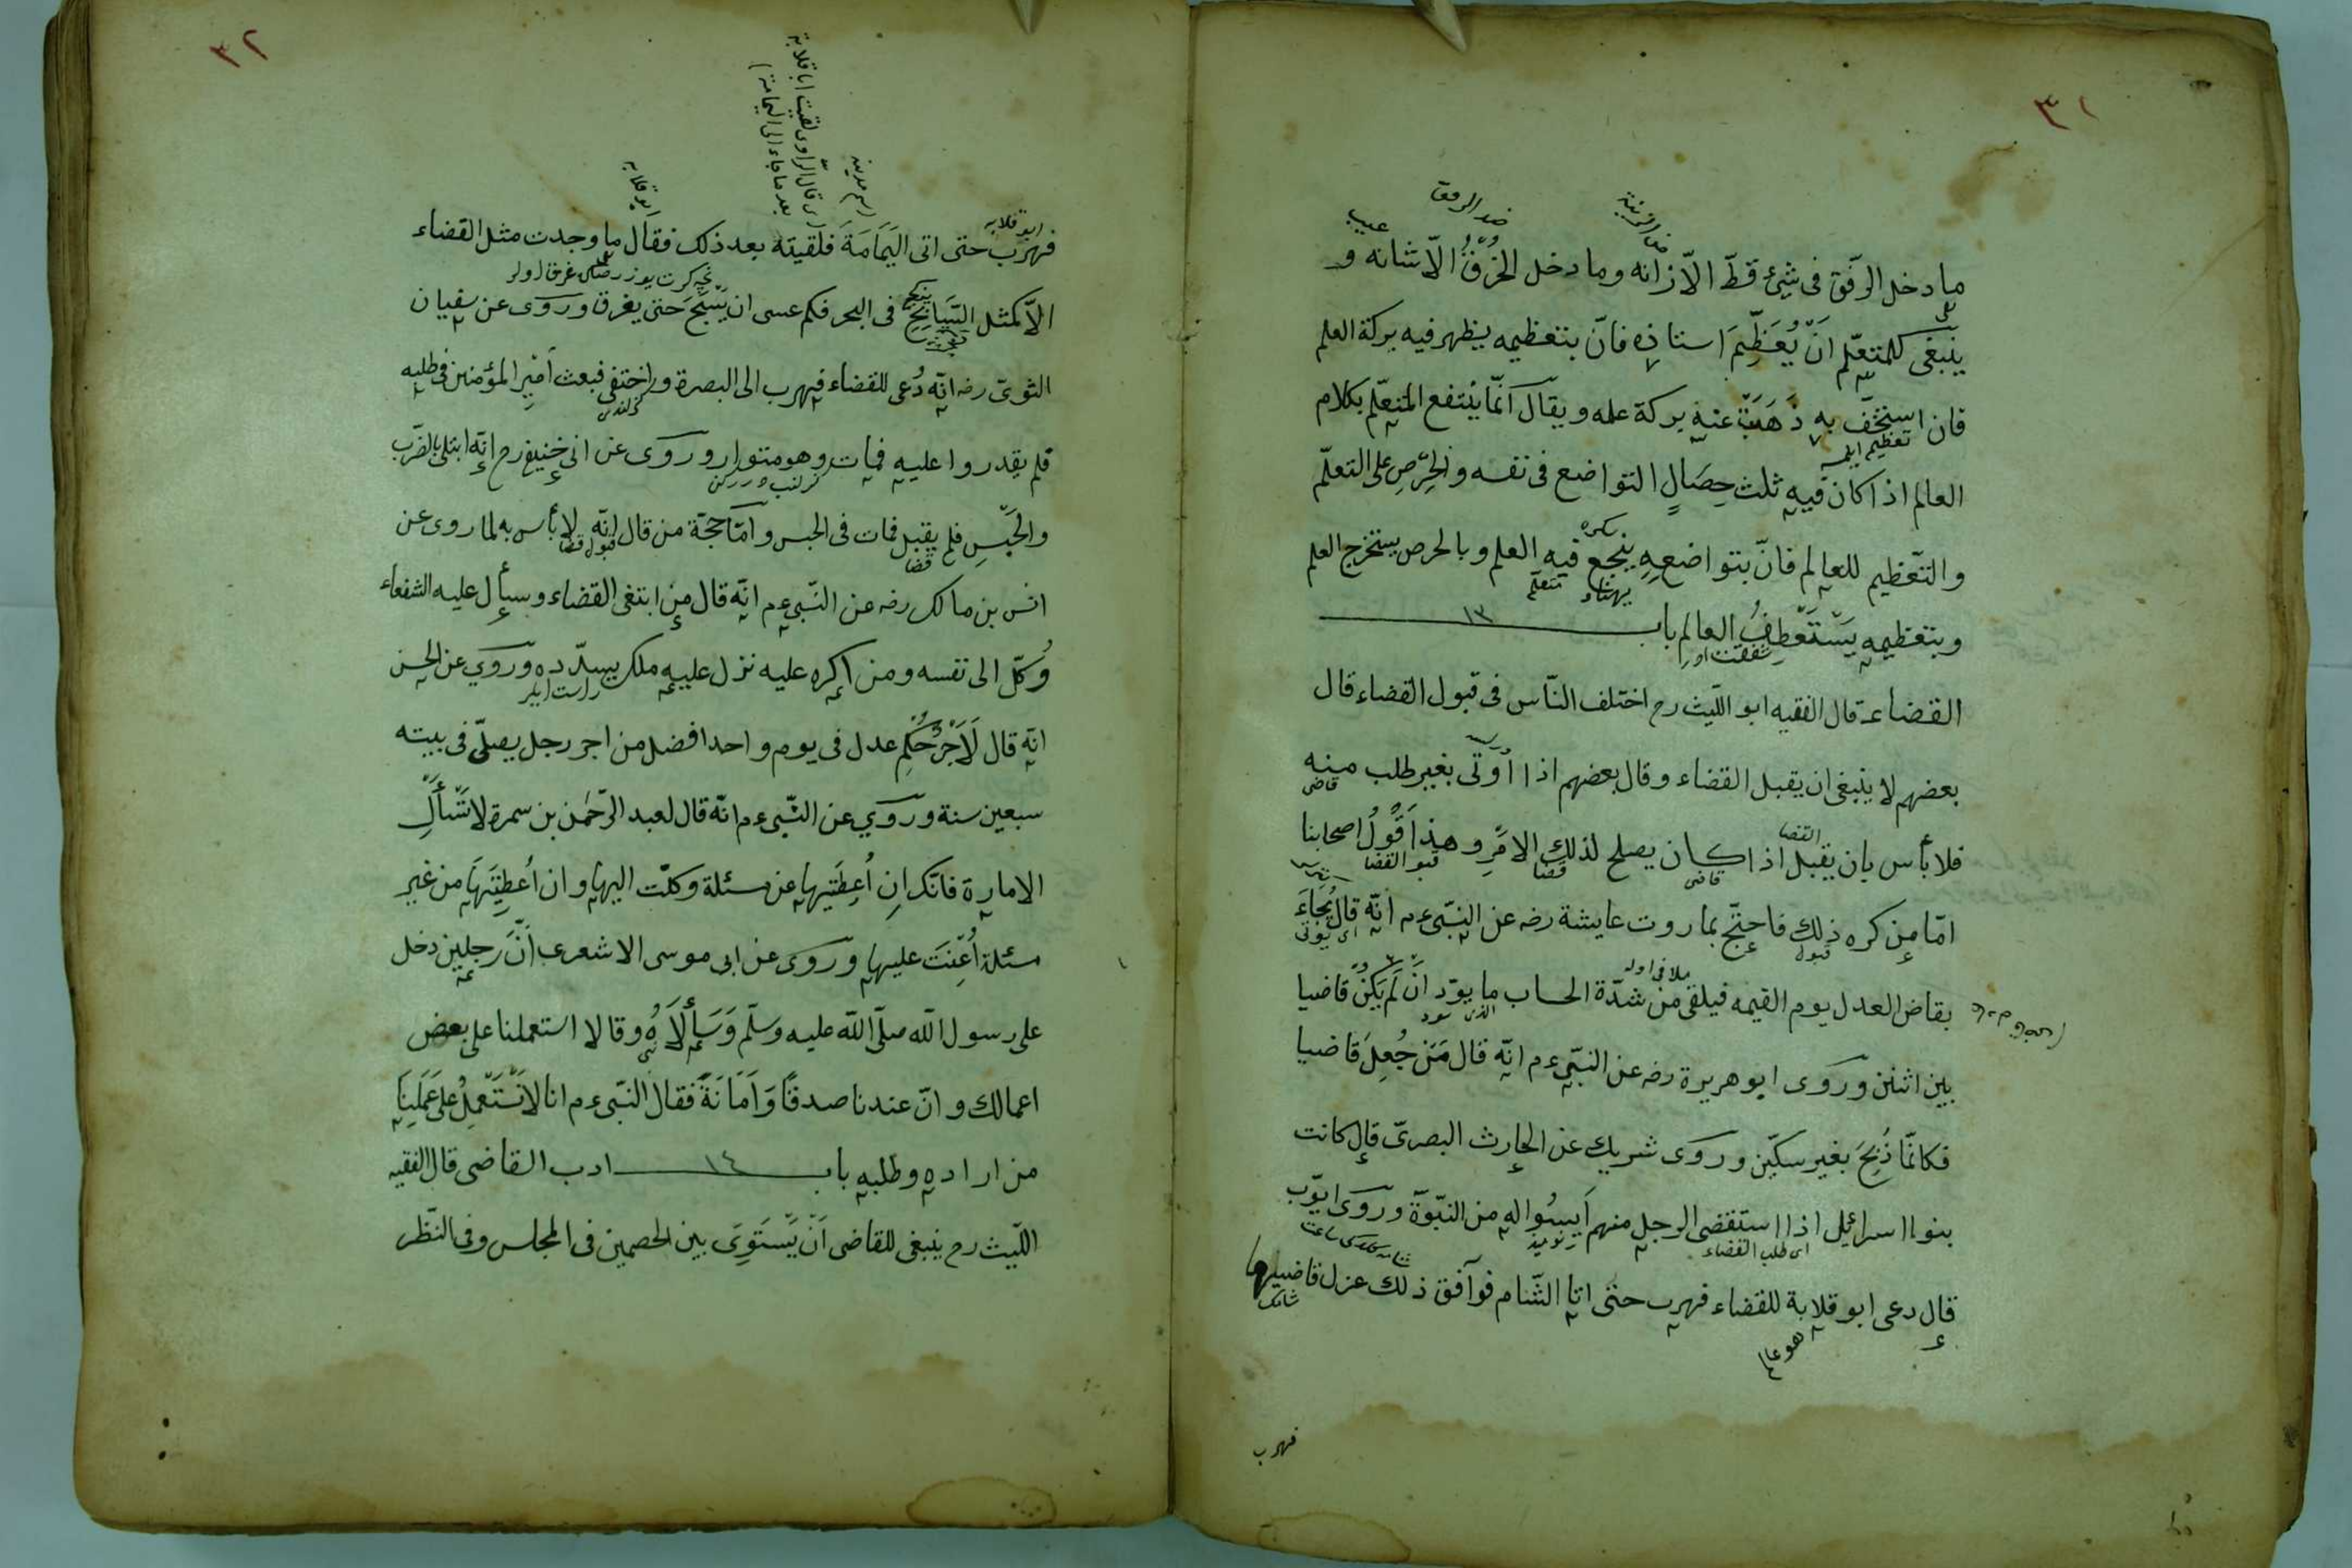 ٣١
ضد الزينة
ضد الرفق
عيب
ما دخل الرّفق فى شئ قطّ الاّ زانه وما دخل الخُرْقُ الاّ شانه و
ينبغى للمتعلّم انْ يُعَظِّمَ استاذه فانّ بتعظيمه يظهر فيه بركة العلم
فان استخفّ به ذَهَبَتْ عنه بركة علمه ويقال انّما ينتفع المتعلّم بكلام
العالم اذا كان فيه ثلث خِصَالٍ التواضع فى نفسه والحِرْصِ على التعلّم
والتّعظيم للعالم فانّ بتواضعه ينجع فيه العلم وبالحرص يستخرج العلم
وبتعظيمه يَسْتَعْطِفُ العالم باب ١٣
القضاء قال الفقيه ابو اللّيث رح اختلف النّاس فى قبول القضاء قال
بعضهم لا ينبغى ان يقبل القضاء وقال بعضهم اذا اُوتى بغير طلب منه
قاضى
القضا
فلا بأس بان يقبل اذا كان يصلح لذلك الامرِ وهذا قَوْلُ اصحابنا
قاضى قضا قبو القضا
امّا من كره ذلك فاحتجّ بما روت عايشة رضه عن النّبىّ ءم انّه قال يُجَاءُ
قبول اى يؤتى
بقاض العدل يوم القيمه فيلقى من شدّة الحساب ما يودّ انْ لَمْ يَكُنْ قاضيا
بين اثنين وروى ابو هريرة رضه عن النّبىّ ءم انّه قال مَنْ جُعِلَ قاضيا
فكانّما ذُبِحَ بغير سكّين وروى شريك عن الحارث البصرىّ قال كانت
بنوا اسرائيل اذا استقضى الرجل منهم اَيِسُوا له من النبّوة وروى ايّوب
اى طلب القضاء
قال دعى ابو قلابة للقضاء فهرب حتى اتا الشّام فوافق ذلك عزل قاضيها
فهرب
٣٢
اى قال الرّاوى لقيت ابا قلابة
بعد ما جاء الى اليمامة
اسم مدينه
ابو قلابه
ابو قلابه
فهرب حتى اتى اليَمَامَةَ فلقيته بعد ذلك فقال ما وجدت مثل القضاء
الاّ كمثل السَّابِحِ فى البحر فكم عسى ان يَسْبَحَ حتى يغرق وروى عن سفيان
الثورىّ رضه انّه دُعى للقضاء فهرب الى البصرة واختفى فبعث امير المؤمنين فى طلبه
فلم يقدروا عليه فمات وهو متوار وروى عن ابى حنيفة رح انّه ابتلى بالضّرب
والحَبْسِ فلم يقبل فمات فى الحبس وامّا حجّة من قال انّه لا بأس به لما روى عن
قضا قبول قضا
انس بن مالك رضه عن النّبىّ ءم انّه قال من ابتغى القضاء وسأل عليه الشفعاء
وُكّل الى نفسه ومن اكره عليه نزل عليه ملك يسدّده وروى عن الحسن
انّه قال لَاَجْرُ حُكْمِ عدل فى يوم واحد افضل من اجر رجل يصلّى فى بيته
سبعين سنة وروى عن النّبىّ ءم انّه قال لعبد الرّحمن بن سمرة لا تَسْأَلِ
الامارة فانّك ان اُعطيتها عن مسئلة وكلت اليها وان اُعطيتَهَا من غير
مسئلة اُعِنْتَ عليها وروى عن ابى موسى الاشعرى اَنَّ رجلين دخل
على رسول اللّه صلّى اللّه عليه وسلّم وَسَأَلَاهُ وقالا استعملنا على بعض
اعمالك وانّ عندنا صدقًا وَاَمَانَةً فقال النّبىّ ءم انا لا نَسْتَعْمِلُ على عَمَلِنَا
من اراده وطلبه باب ١٤ ادب القاضى قال الفقيه
اللّيث رح ينبغى للقاضى اَنْ يَسْتَوِىَ بين الخصمين فى المجلس وفى النّظر